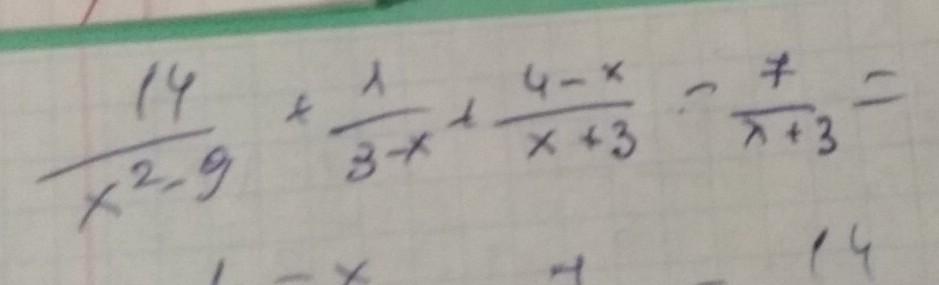 14/(x²-9) + 1/(3-x) + (4-x)/(x+3) - 7/(x+3) =
1 - x 7 - 14